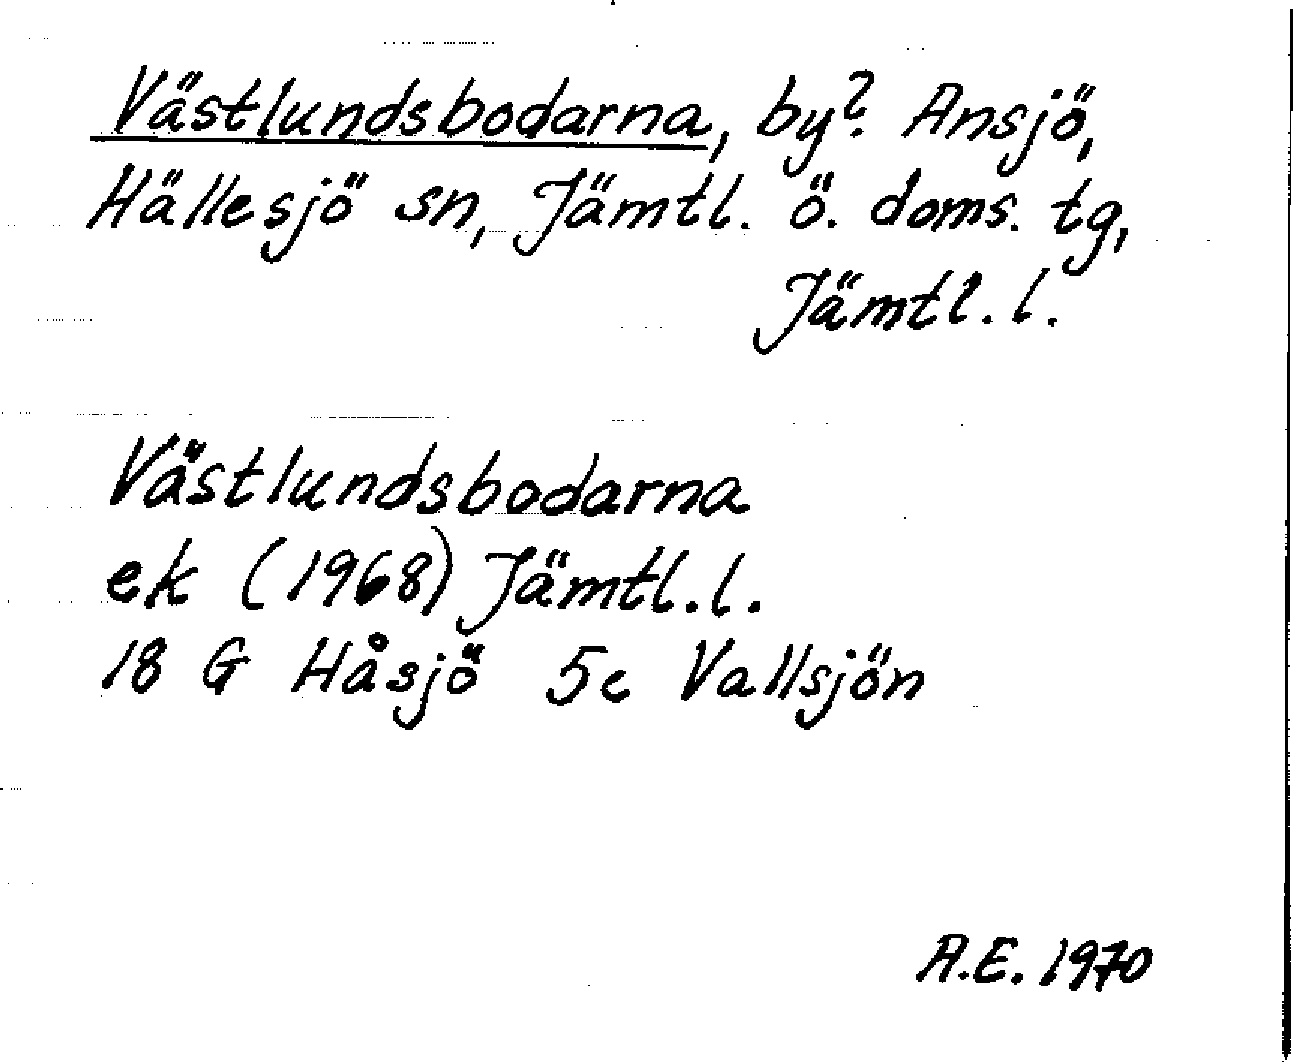 Västlundsbodarna, by? Ansjö,
Hällesjö sn, Jämtl. ö. doms. tg,
Jämtl. l.
Västlundsbodarna
ek (1968) Jämtl. l.
18 G Håsjö 5c Vallsjön
A.E. 1970